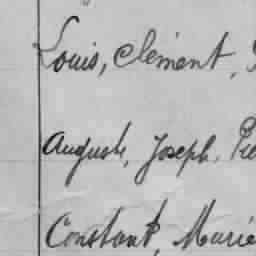 Louis, Clément,
Auguste, Joseph,
Constant, Marie